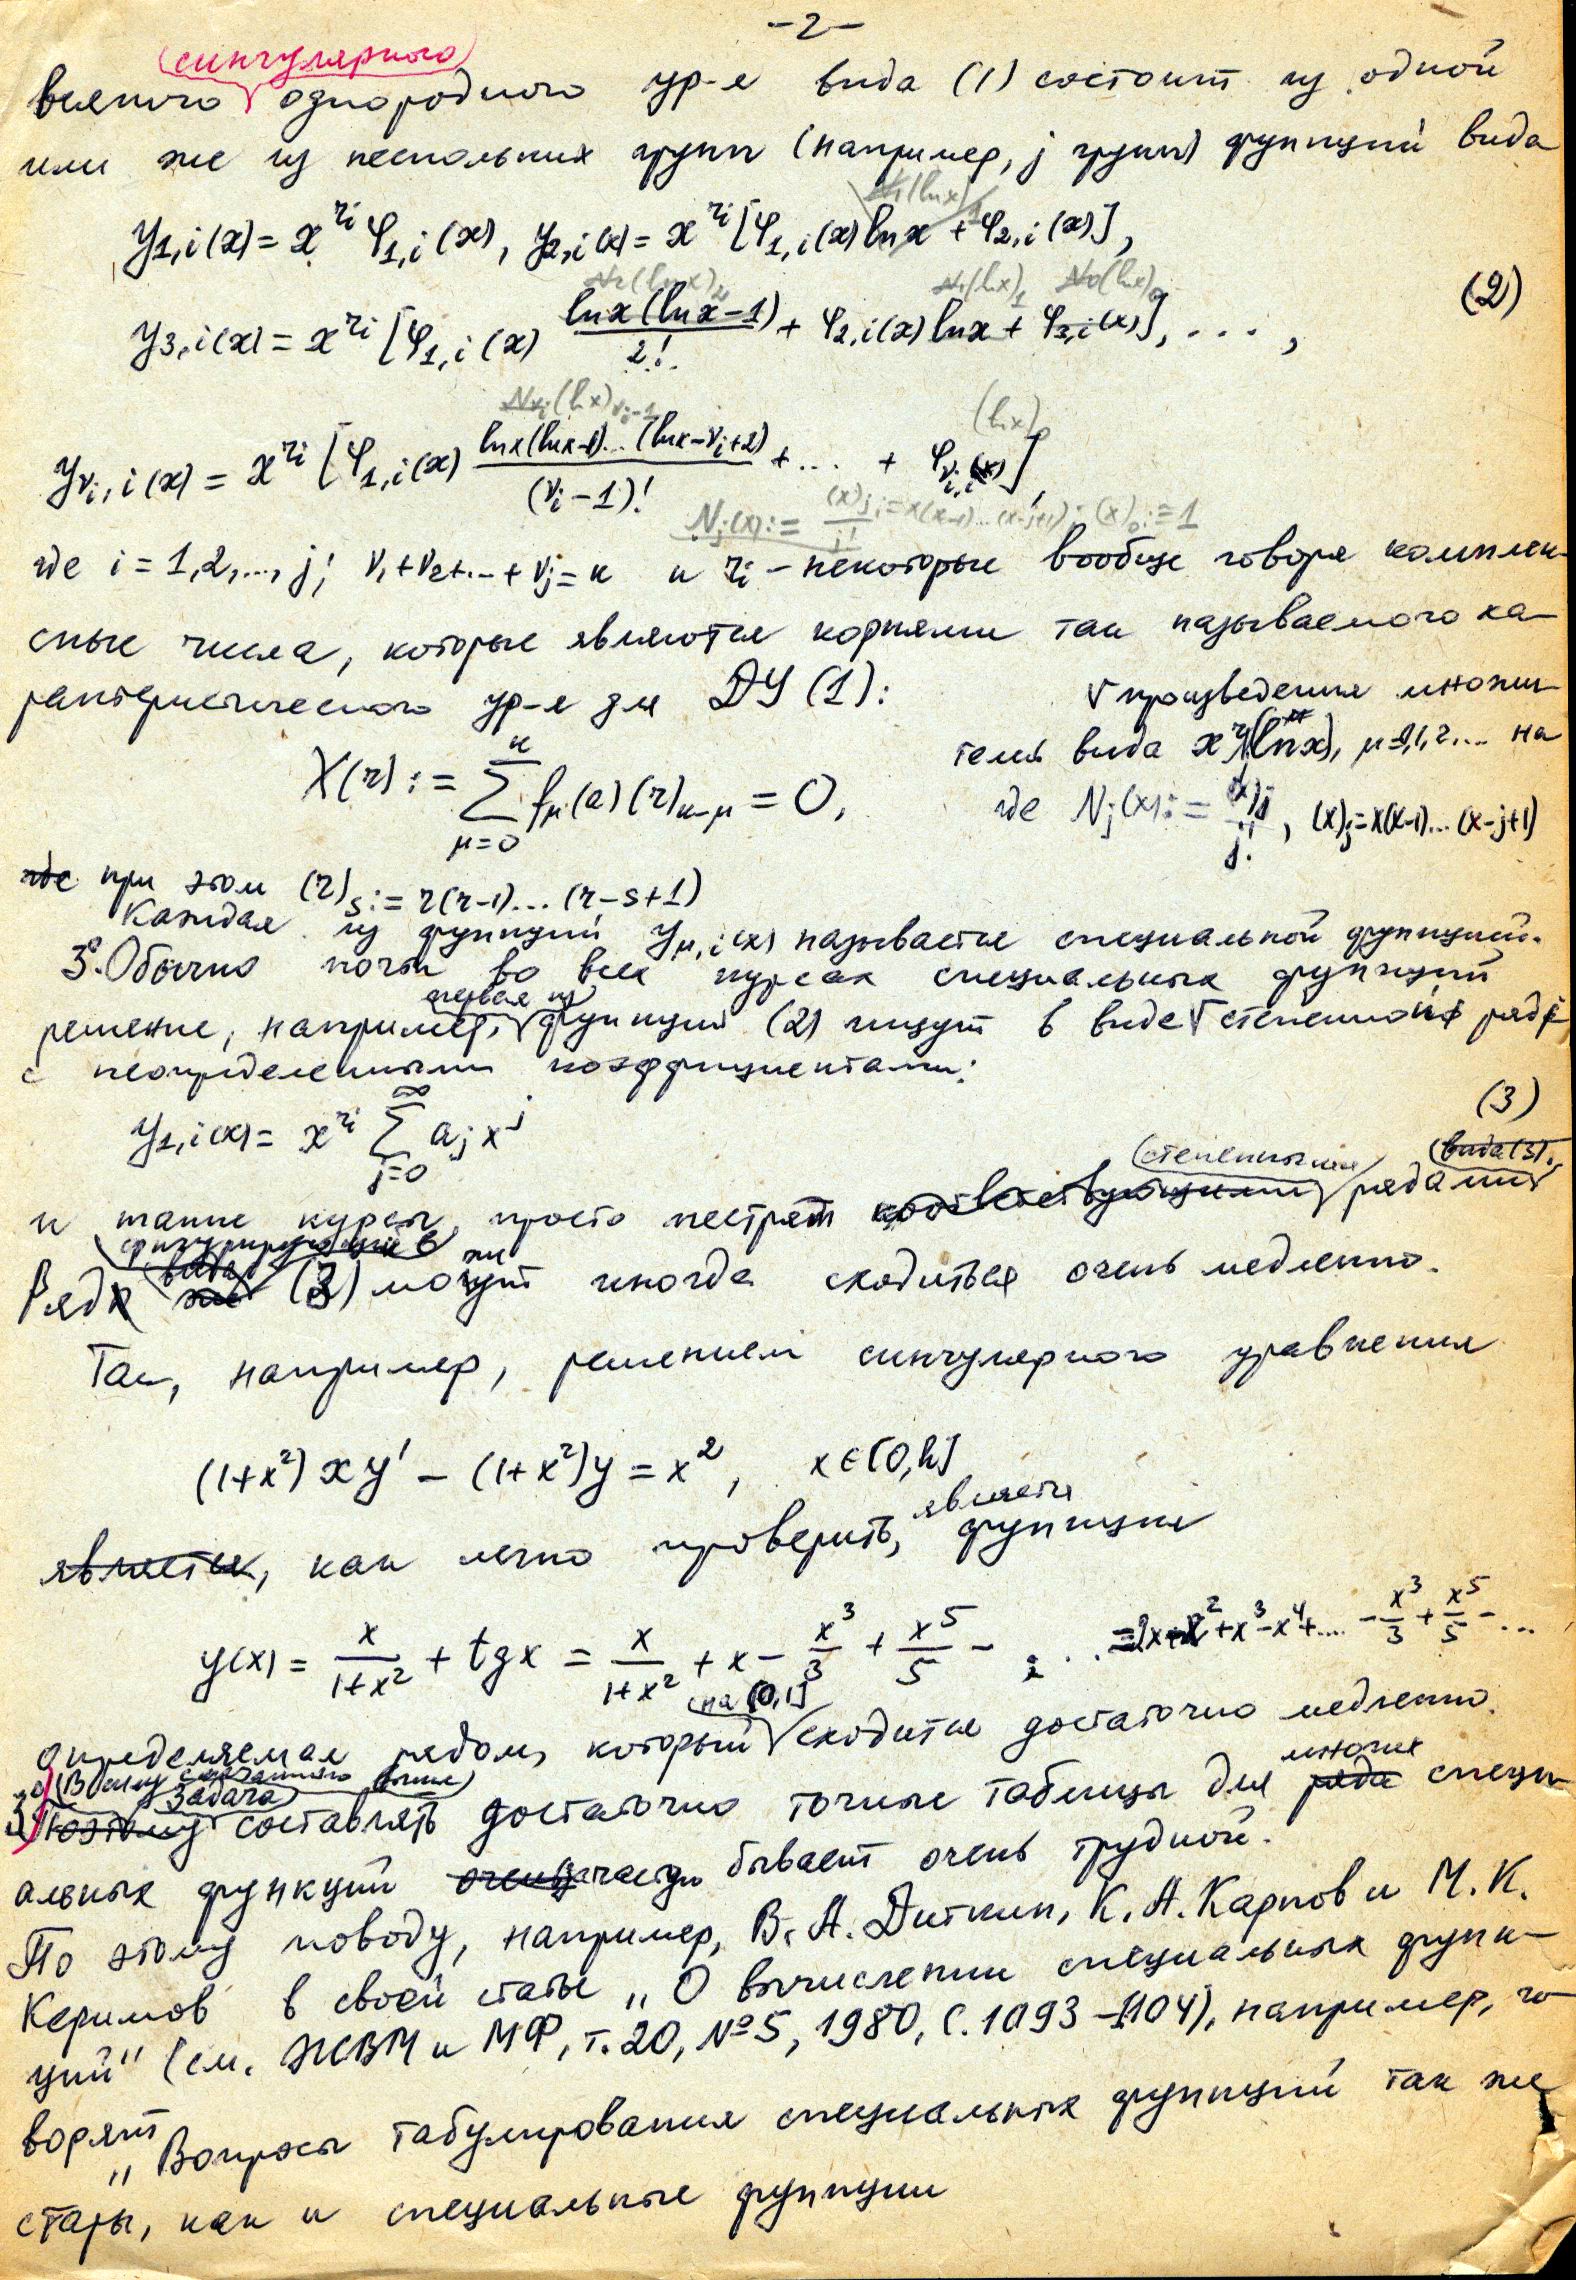 -2-
сингулярного
всякого однородного ур-я вида (1) состоит из одной
или же из нескольких групп (например, j групп) функций вида
N₁(lnx)₁
y₁,ᵢ(x) = x^{rᵢ} φ₁,ᵢ(x), y₂,ᵢ(x) = x^{rᵢ} [φ₁,ᵢ(x) lnx + φ₂,ᵢ(x)],
N₂(lnx)₂ N₁(lnx)₁ N₀(lnx)₀
y₃,ᵢ(x) = x^{rᵢ} [φ₁,ᵢ(x) lnx(lnx-1)/2! + φ₂,ᵢ(x) lnx + φ₃,ᵢ(x)], ..., (2)
(lnx)_{νᵢ-1} (lnx)₀
y_{νᵢ,i}(x) = x^{rᵢ} [φ₁,ᵢ(x) lnx(lnx-1)...(lnx-νᵢ+2)/(νᵢ-1)! + ... + φ_{νᵢ,i}(x)],
Nⱼ(x) := (x)ⱼ/j! ; = x(x-1)...(x-j+1); (x)₀ := 1
где i = 1,2,..., j; ν₁+ν₂+...+νⱼ = n и rᵢ - некоторые вообще говоря комплек-
сные числа, которые являются корнями так называемого ха-
рактеристического ур-я для ДУ (1):
V произведения множи-
теля вида x^{r}(lnx), μ=0,1,2... на
X(r) := ∑_{μ=0}^{n} f_μ(a)(r)_{n-μ} = 0,
где Nⱼ(x) := (x)ⱼ/j!, (x)ⱼ = x(x-1)...(x-j+1)
где при этом (r)ₛ := r(r-1)...(r-s+1)
Каждая из функций y_{μ,i}(x) называется специальной функцией.
3°. Обычно почти во всех курсах специальных функций
первая из
решение, например, функций (2) ищут в виде V степенного ряда
с неопределенными коэффициентами:
y₁,ᵢ(x) = x^{rᵢ} ∑_{j=0}^{∞} aⱼ xʲ (3)
степенными вида (3).
и такие курсы просто пестрят соответствующими рядами
фигурирующий в
вида же
Ряд (3) может иногда сходиться очень медленно.
Так, например, решением сингулярного уравнения
(1+x²) x y' - (1+x²) y = x², x ∈ [0, h]
является
является, как легко проверить, функция
y(x) = x/(1+x²) + tg x = x/(1+x²) + x - x³/3 + x⁵/5 - ... = 2x - x² + x³ - x⁴ + .... - x³/3 + x⁵/5 - ...
на [0,1]
определяемая рядом, который V сходится достаточно медленно.
В силу сказанного выше многих
задача
3° Поэтому составлять достаточно точные таблицы для ряда специ-
альных функций очень часто бывает очень трудной.
По этому поводу, например, В. А. Диткин, К. А. Карпов и М. К.
Керимов в своей статье „О вычислении специальных функ-
ций" (см. ЖВМ и МФ, т. 20, №5, 1980, с. 1093-1104), например, го-
ворят
„Вопросы табулирования специальных функций так же
стары, как и специальные функции